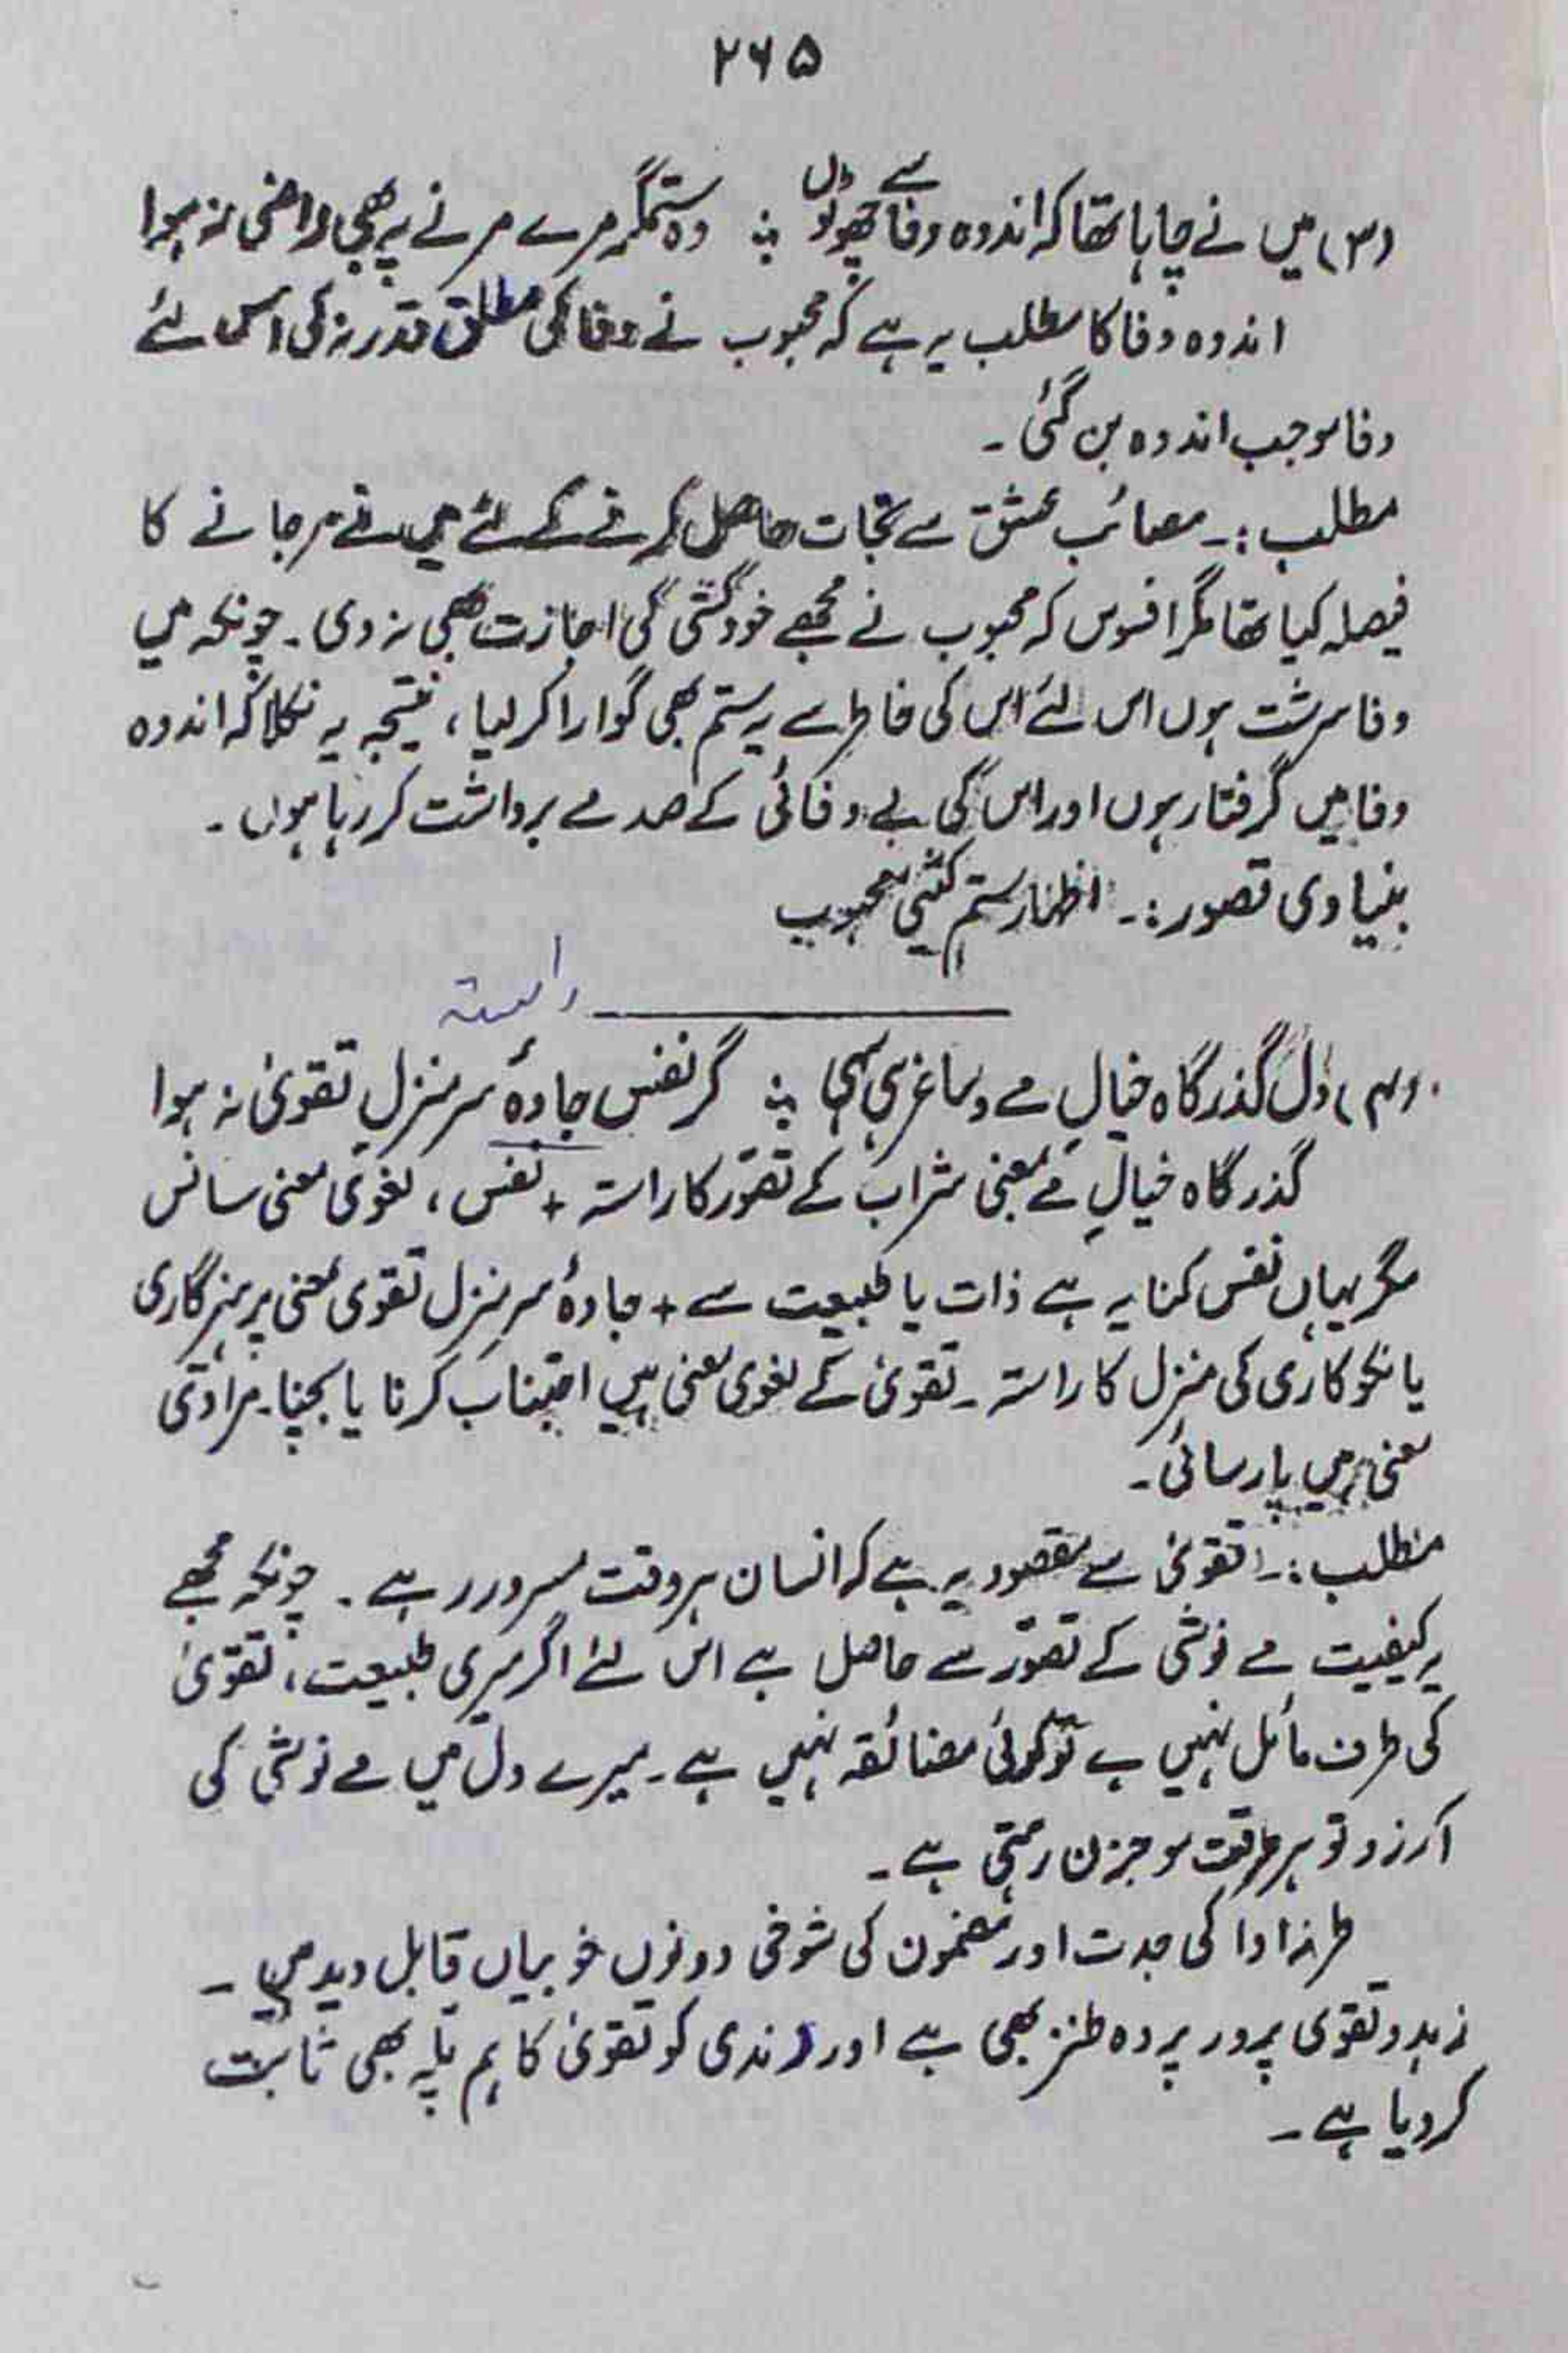 ۲۶۵
(۳) میں نے چاہا تھا کہ اندوہ وفا سے چھوٹوں ؞ وہ ستمگر مرے مرنے پہ بھی راضی نہ ہوا
اندوہ وفا کا مطلب یہ ہے کہ محبوب نے وفا کی مطلق قدر نہ کی اس لئے
وفا موجب اندوہ بن گئی ۔
مطلب :۔ مصائب عشق سے نجات حاصل کرنے کے لئے میں نے مرجانے کا
فیصلہ کیا تھا مگر افسوس کہ محبوب نے مجھے خودکشی کی اجازت بھی نہ دی ۔ چونکہ میں
وفا سرشت ہوں اس لئے اس کی خاطر سے یہ ستم بھی گوارا کر لیا ، نتیجہ یہ نکلا کہ اندوہ
وفا میں گرفتار ہوں اور اس کی بے وفائی کے صدمے برداشت کر رہا ہوں ۔
بنیادی تصور :۔ اظہار ستم کشی محبوب
راستہ
(۴) دل گذرگاہ خیالِ مے و ساغر ہی سہی ؞ گر نفس جادۂ سرمنزلِ تقویٰ نہ ہوا
گذرگاہ خیالِ مے بمعنی شراب کے تصوّر کا راستہ + نفس ، لغوی معنی سانس
مگر یہاں نفس کنایہ ہے ذات یا طبیعت سے + جادۂ سرمنزل تقوی بمعنی پرہیزگاری
یا نکوکاری کی منزل کا راستہ ۔ تقویٰ کے لغوی معنی ہیں اجتناب کرنا یا بچنا ۔ مرادی
معنی ہیں پارسائی ۔
مطلب :۔ تقویٰ سے مقصود یہ ہے کہ انسان ہر وقت مسرور رہے ۔ چونکہ مجھے
یہ کیفیت مے نوشی کے تصوّر سے حاصل ہے اس لئے اگر میری طبیعت ، تقویٰ
کی طرف مائل نہیں ہے تو کوئی مضائقہ نہیں ہے ۔ میرے دل میں مے نوشی کی
آرزو تو ہر وقت موجزن رہتی ہے ۔
طرز ادا کی جدت اور مضمون کی شوخی دونوں خوبیاں قابل دید ہیں ۔
زہد و تقوی پر در پردہ طنز بھی ہے اور رندی کو تقویٰ کا ہم پلہ بھی ثابت
کر دیا ہے ۔